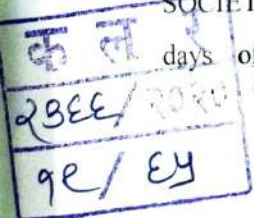 SOCIET
days o
क ल १
२३६६/२०२०
१९/६५